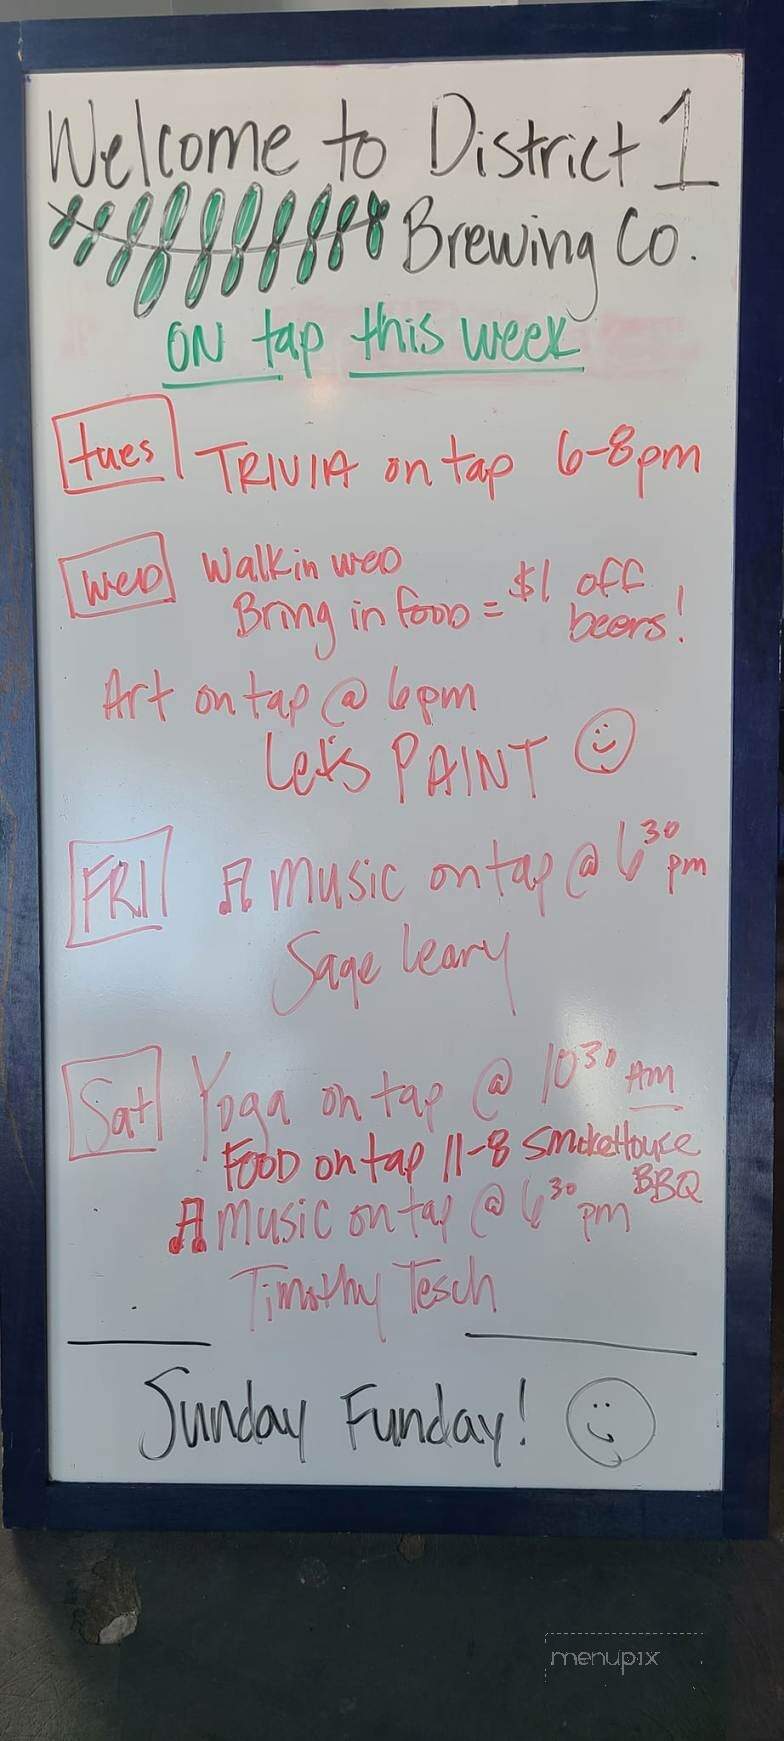 Welcome to District 1
Brewing Co.
ON tap this week
tues TRIVIA on tap 6-8pm
WED Walk in WED
Bring in food = $1 off beers!
Art on tap @ 6pm
Let's PAINT
FRI music on tap @ 6³⁰ pm
Sage Leary
Sat Yoga on tap @ 10³⁰ AM
FOOD on tap 11-8 SmokeHouse BBQ
music on tap @ 6³⁰ pm
Timothy Tesch
Sunday Funday!
menupix